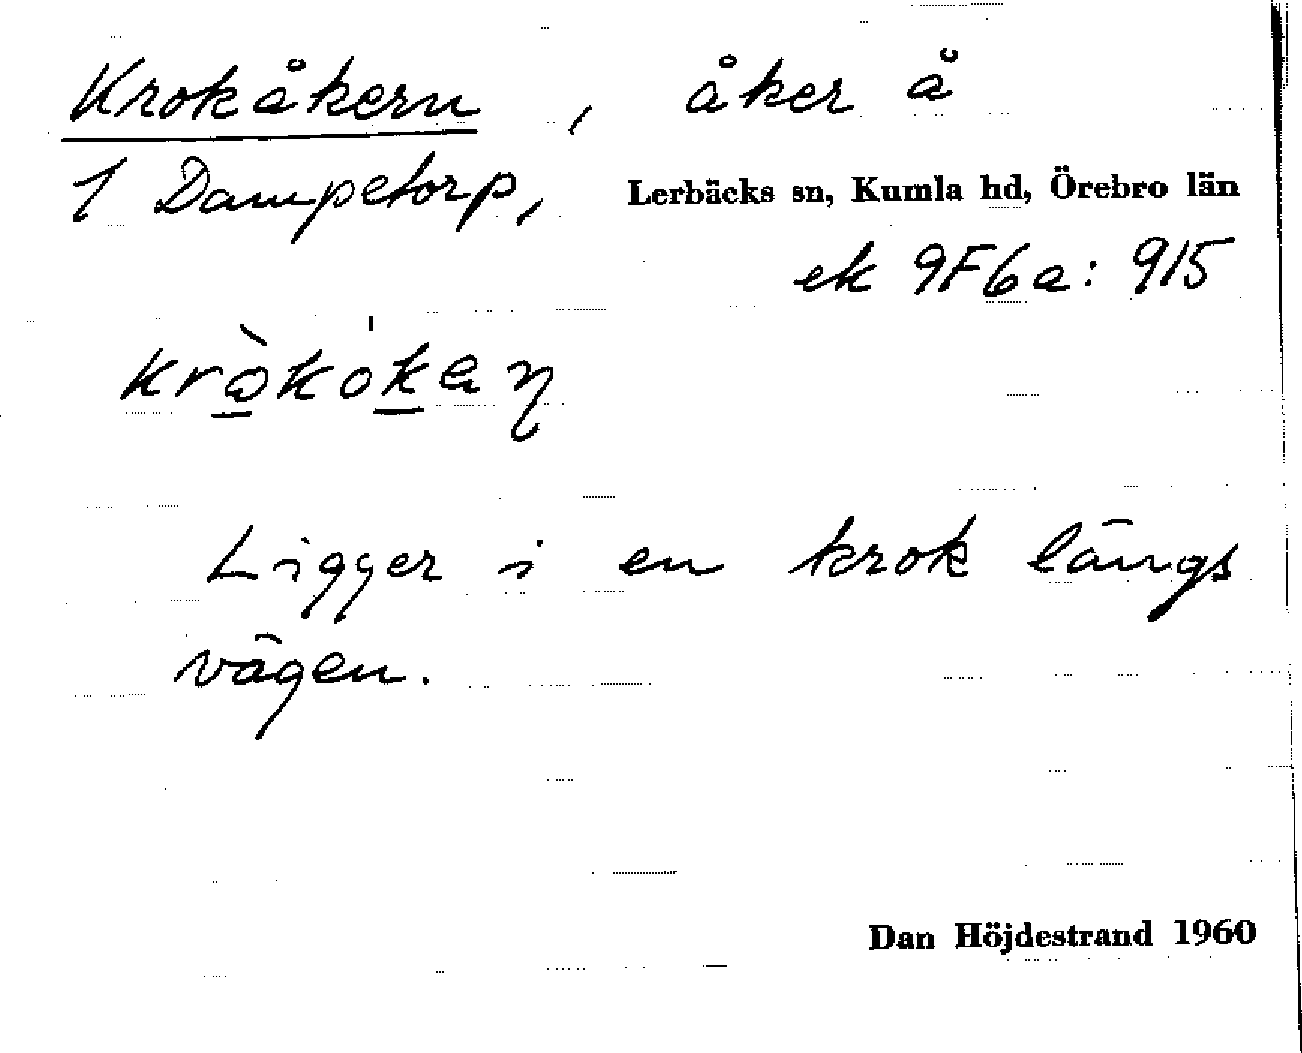 Krokåkern, åker å
1 Dampetorp, Lerbäcks sn, Kumla hd, Örebro län
ek 9F6a: 915
Ligger i en krok längs
vägen.
Dan Höjdestrand 1960